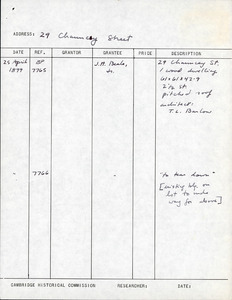 ADDRESS: 29 Chauncey Street
DATE REF. GRANTOR GRANTEE PRICE DESCRIPTION
25 April BP J.H. Beale, 29 Chauncey St.
1899 7765 Jr. 1 wood dwelling
2 1/2 st
pitched roof
architect:
T.L. Barlow
7766 "to tear down"
[existing on
lot to make
way for above]
CAMBRIDGE HISTORICAL COMMISSION RESEARCHER: DATE: